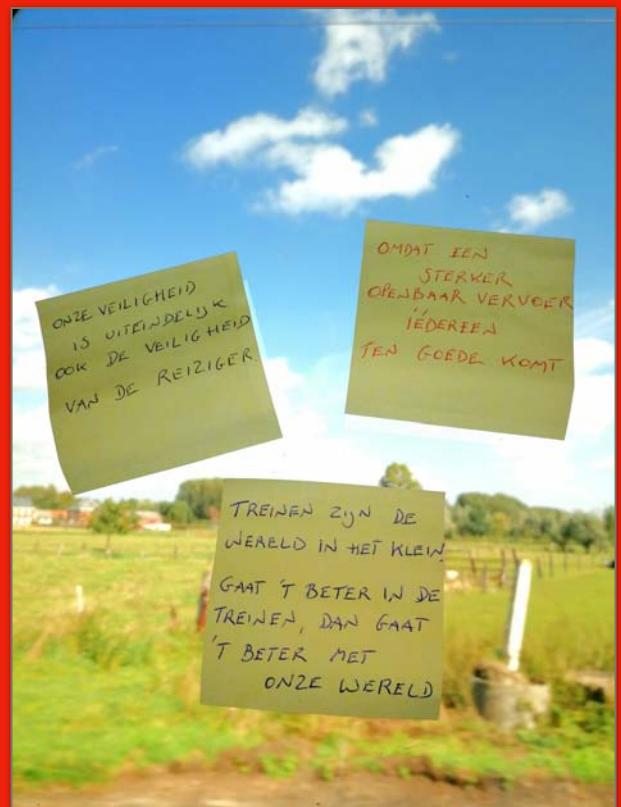 ONZE VEILIGHEID
IS UITEINDELIJK
OOK DE VEILIGHEID
VAN DE REIZIGER
OMDAT EEN
STERKER
OPENBAAR VERVOER
IÉDEREEN
TEN GOEDE KOMT
TREINEN ZIJN DE
WERELD IN HET KLEIN.
GAAT 'T BETER IN DE
TREINEN, DAN GAAT
'T BETER MET
ONZE WERELD